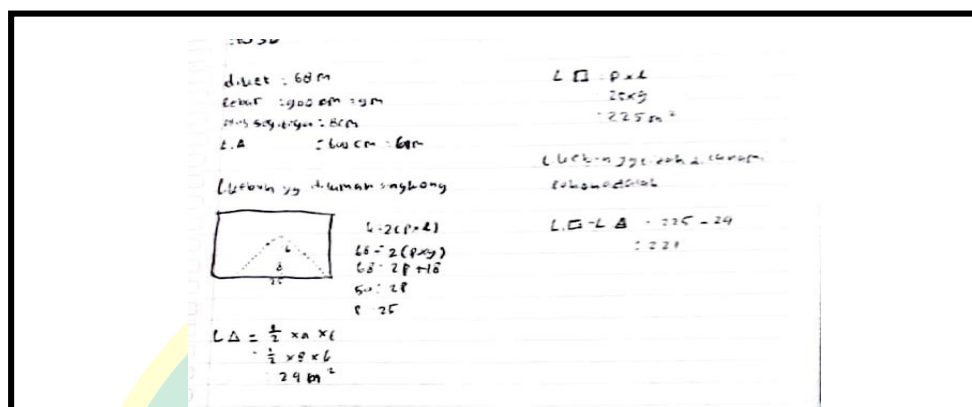 diket : 68 m
Lebar : 900 cm = 9m
alas segitiga : 8cm
L.Δ : 600 cm : 6m
L kebun yg ditanam singkong
6
8
25
k = 2(p+l)
68 = 2(p+9)
68 = 2p + 18
50 : 2p
p = 25
L Δ = 1/2 x a x t
= 1/2 x 8 x 6
24 m²
L □ = p x l
25x9
: 225 m²
L kebun yg
L.□ - L Δ = 225 - 24
: 221